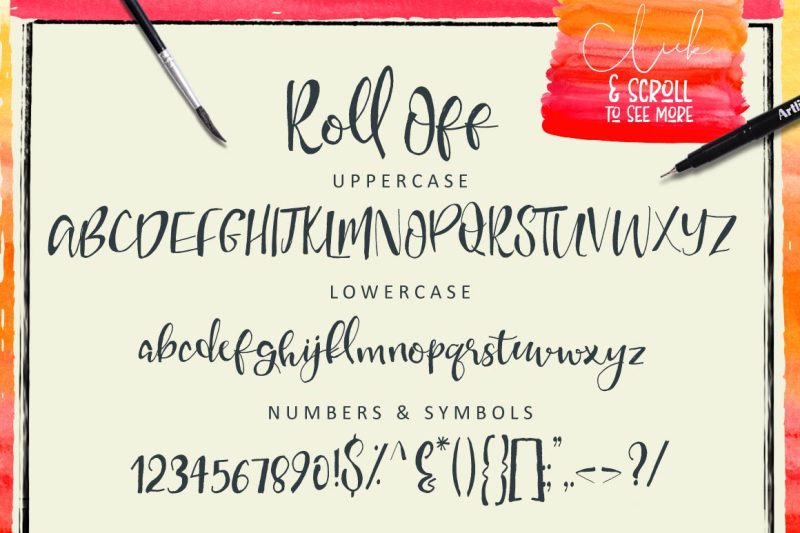 Click
& SCROLL
TO SEE MORE
Roll Off
UPPERCASE
ABCDEFGHIJKLMNOPQRSTUVWXYZ
LOWERCASE
abcdefghijklmnopqrstuvwxyz
NUMBERS & SYMBOLS
1234567890!$%^&*(){}[]:;",.<>?/